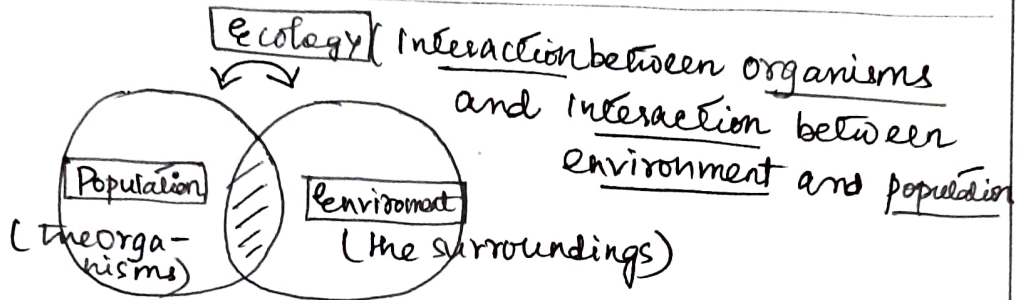 ecology ( Interaction between organisms
and interaction between
environment and population
Population
(the orga-
nisms)
enviroment
(the surroundings)